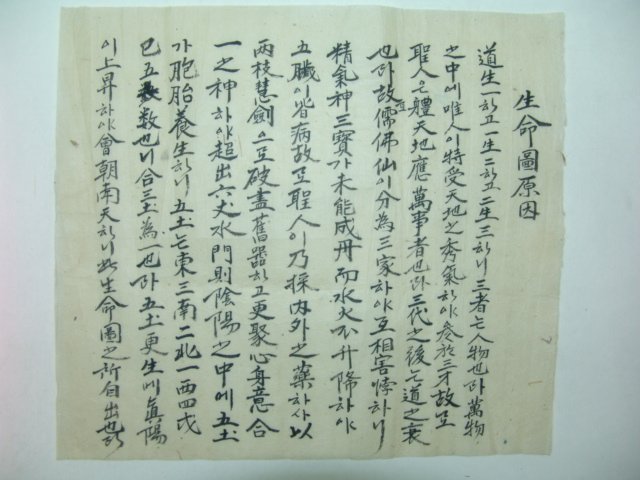 生命圖原因
道生一하고一生二하고二生三하니三者는人物也라萬物
之中에唯人이特受天地之秀氣하야參於三才故로
聖人은體天地應萬事者也라三代之後는道之衰
也라故儒佛仙이分為三家하야互相害悖하니
精氣神三寶가未能成丹而水火不升降하야
五臟이皆病故로聖人이乃採內外之藥하사以
兩枝慧劍으로破盡舊器하고更聚心身意合
一之神하야超出六丈水門則陰陽之中에五土
가胞胎養生하니五土는東三南二北一西四戊
己五數也니合三土為一也라五土更生에眞陽
이上昇하야會朝南天하니此生命圖之所自出也라